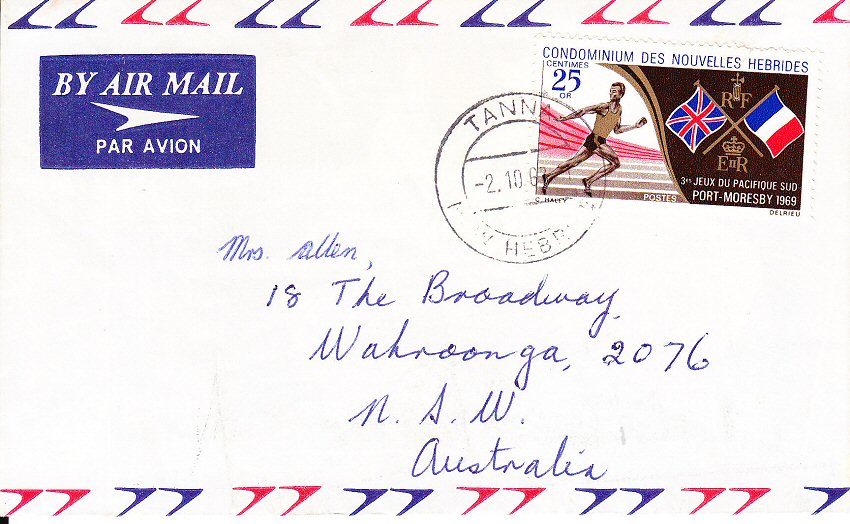 BY AIR MAIL
PAR AVION
CONDOMINIUM DES NOUVELLES HEBRIDES
CENTIMES
25
OR
RF
EIIR
3es JEUX DU PACIFIQUE SUD
PORT-MORESBY 1969
POSTES
S. HALEY
DELRIEU
TANN
-2.10.6
HEBR
Mrs. Allen,
18 The Broadway,
Wahroonga, 2076
N. S. W.
Australia